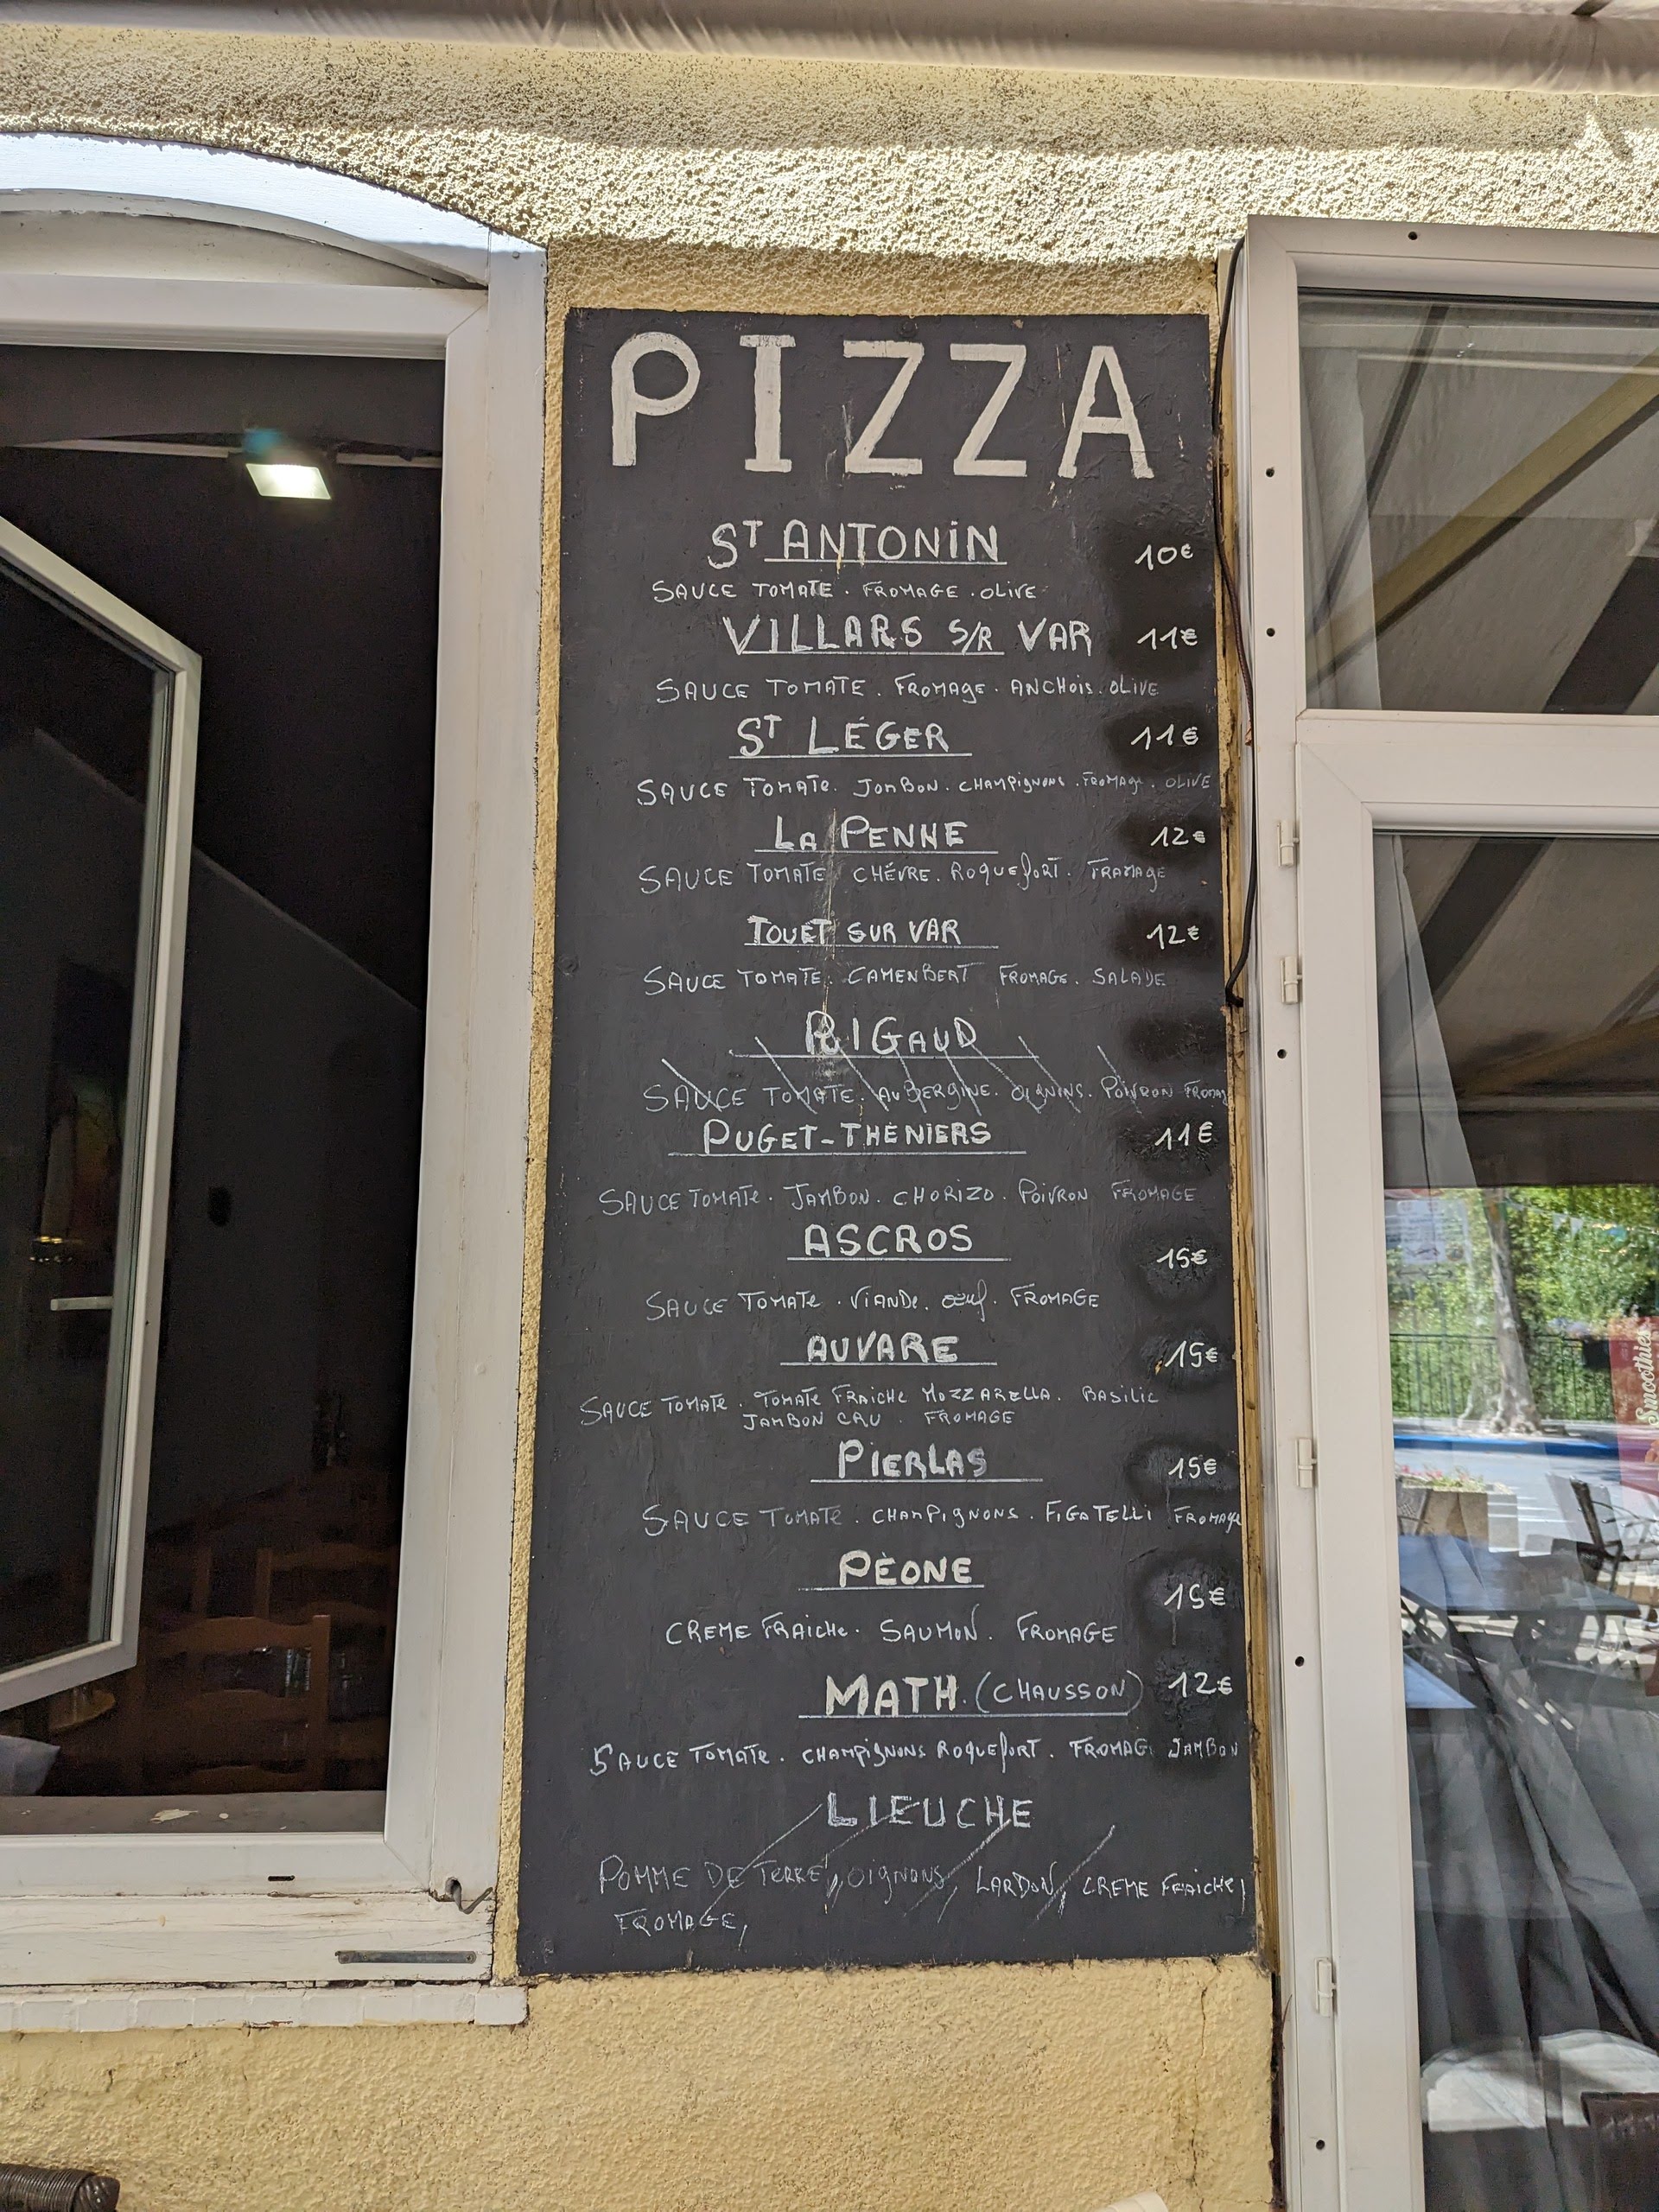 PIZZA
ST ANTONIN 10€
SAUCE TOMATE . FROMAGE . OLIVE
VILLARS S/R VAR 11€
SAUCE TOMATE . FROMAGE . ANCHOIS . OLIVE
ST LÉGER 11€
SAUCE TOMATE . JAMBON . CHAMPIGNONS . FROMAGE . OLIVE
LA PENNE 12€
SAUCE TOMATE CHÉVRE . ROQUEFORT . FRAMAGE
TOUET SUR VAR 12€
SAUCE TOMATE . CAMENBERT FROMAGE . SALADE
RIGAUD
SAUCE TOMATE . AUBERGINE . OIGNINS . POIVRON FROMAG
PUGET-THÈNIERS 11€
SAUCE TOMATE . JAMBON . CHORIZO . POIVRON FROMAGE
ASCROS 15€
SAUCE TOMATE . VIANDE . œuf . FROMAGE
AUVARE 15€
SAUCE TOMATE . TOMATE FRAICHE MOZZARELLA . BASILIC
JAMBON CRU . FROMAGE
PIERLAS 15€
SAUCE TOMATE . CHAMPIGNONS . FIGATELLI FROMAGE
PÈONE 15€
CREME FRAICHE . SAUMON . FROMAGE
MATH . (CHAUSSON) 12€
SAUCE TOMATE . CHAMPIGNONS ROQUEFORT . FROMAG JAMBON
LIEUCHE
POMME DE TERRE, OIGNONS, LARDON, CREME FRAICHE,
FROMAGE,
Smoothies